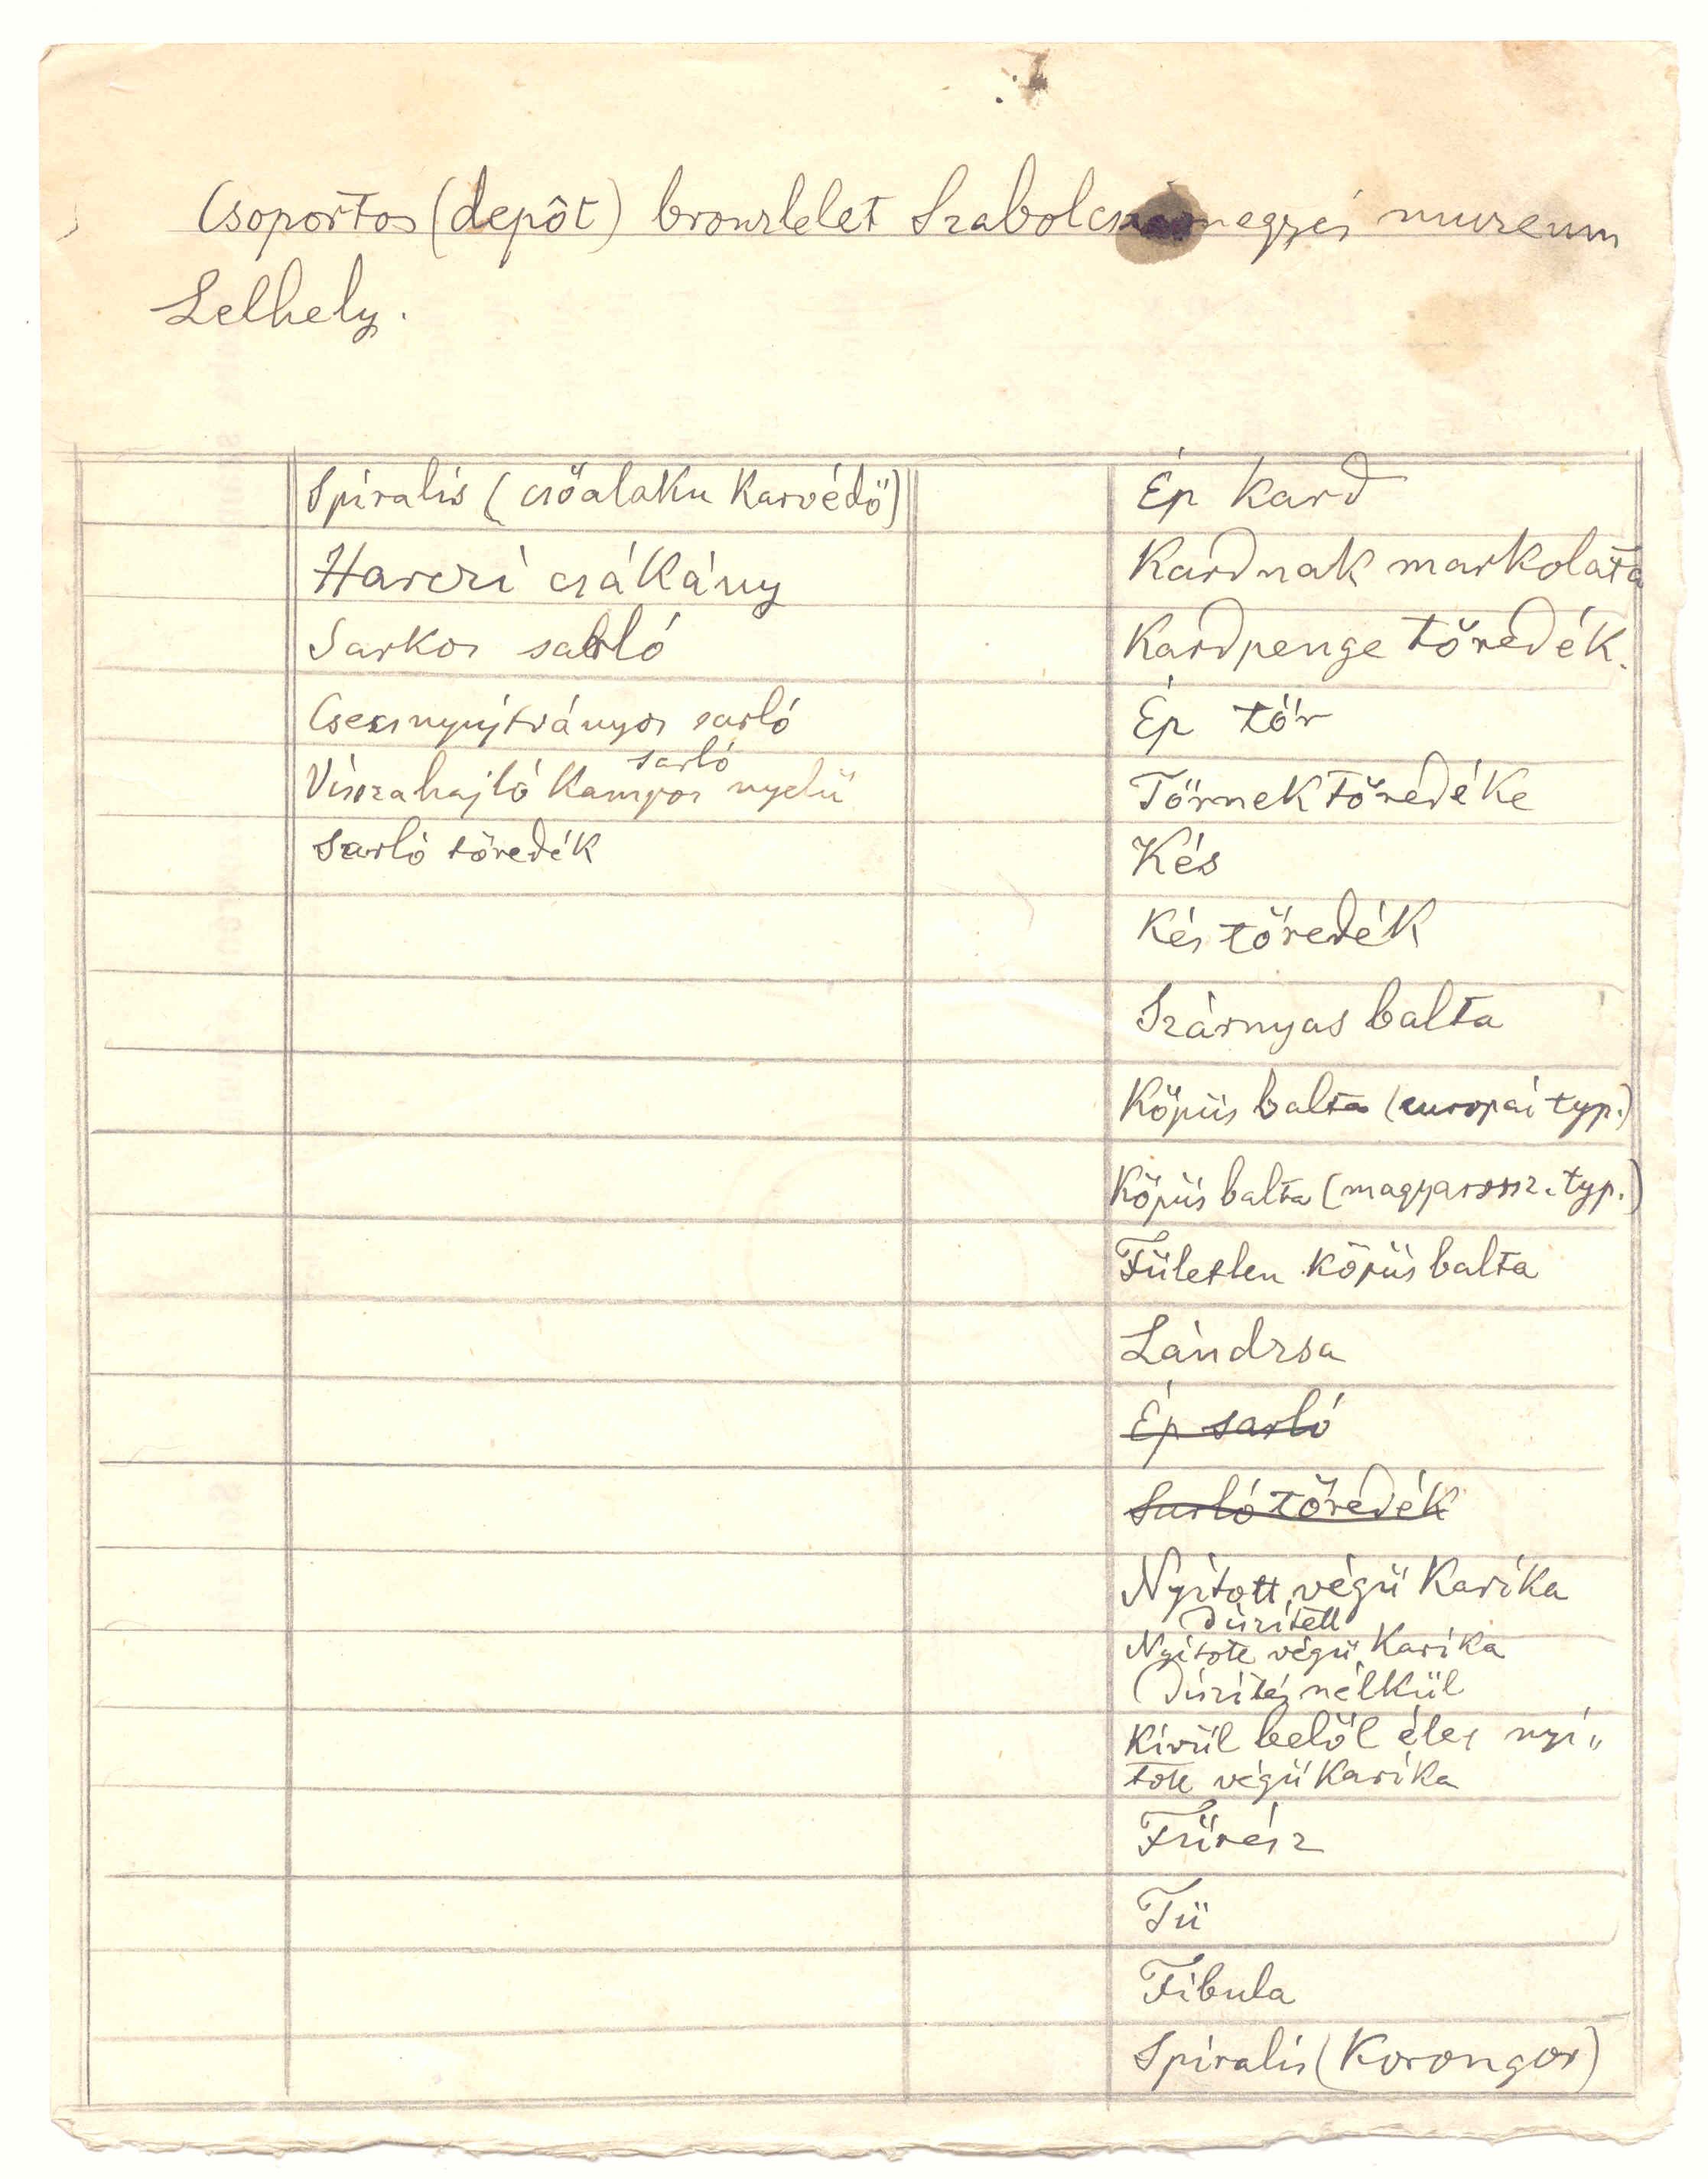 Csoportos (depôt) bronzlelet Szabolcsmegyei muzeum
Lelhely.
Spiralis (csőalaku karvédő)
Harczi csákány
Sarkos sarló
Csecsnyujtványos sarló
sarló
Visszahajló kampos nyelü
Sarló töredék
Ép kard
Kardnak markolata
Kardpenge töredék.
Ép tőr
Tőrnek töredéke
Kés
Kés töredék
Szárnyas balta
Köpüs balta (europai typ.)
Köpüs balta (magyarorsz. typ.)
Fületlen köpüs balta
Lándzsa
Ép sarló
Sarló töredék
Nyitott végü karika
Diszitett
Nyitott végü karika
Diszités nélkül
Kivül belöl éles nyi„
tott végü karika
Fürész
Tü
Fibula
Spiralis (korongos)